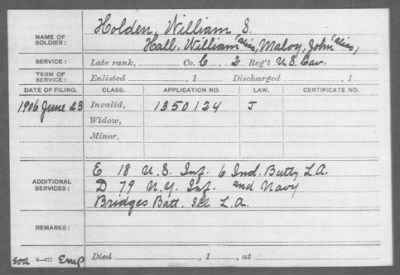 Holden, William S.
NAME OF SOLDIER: Hall, William alias, Maloy, John alias,
SERVICE: Late rank, Co. C 2 Reg't U.S. Cav.
TERM OF SERVICE: Enlisted , 1 Discharged , 1
DATE OF FILING. CLASS. APPLICATION NO. LAW.
1906 June 23 Invalid, 1350124 J
Widow,
Minor,
E 18 U.S. Inf. 6 Ind. Batty L.A.
ADDITIONAL SERVICES: D 79 N.Y. Inf. and Navy
Bridges Batt. Ill L.A.
REMARKS:
Died , 1 , at